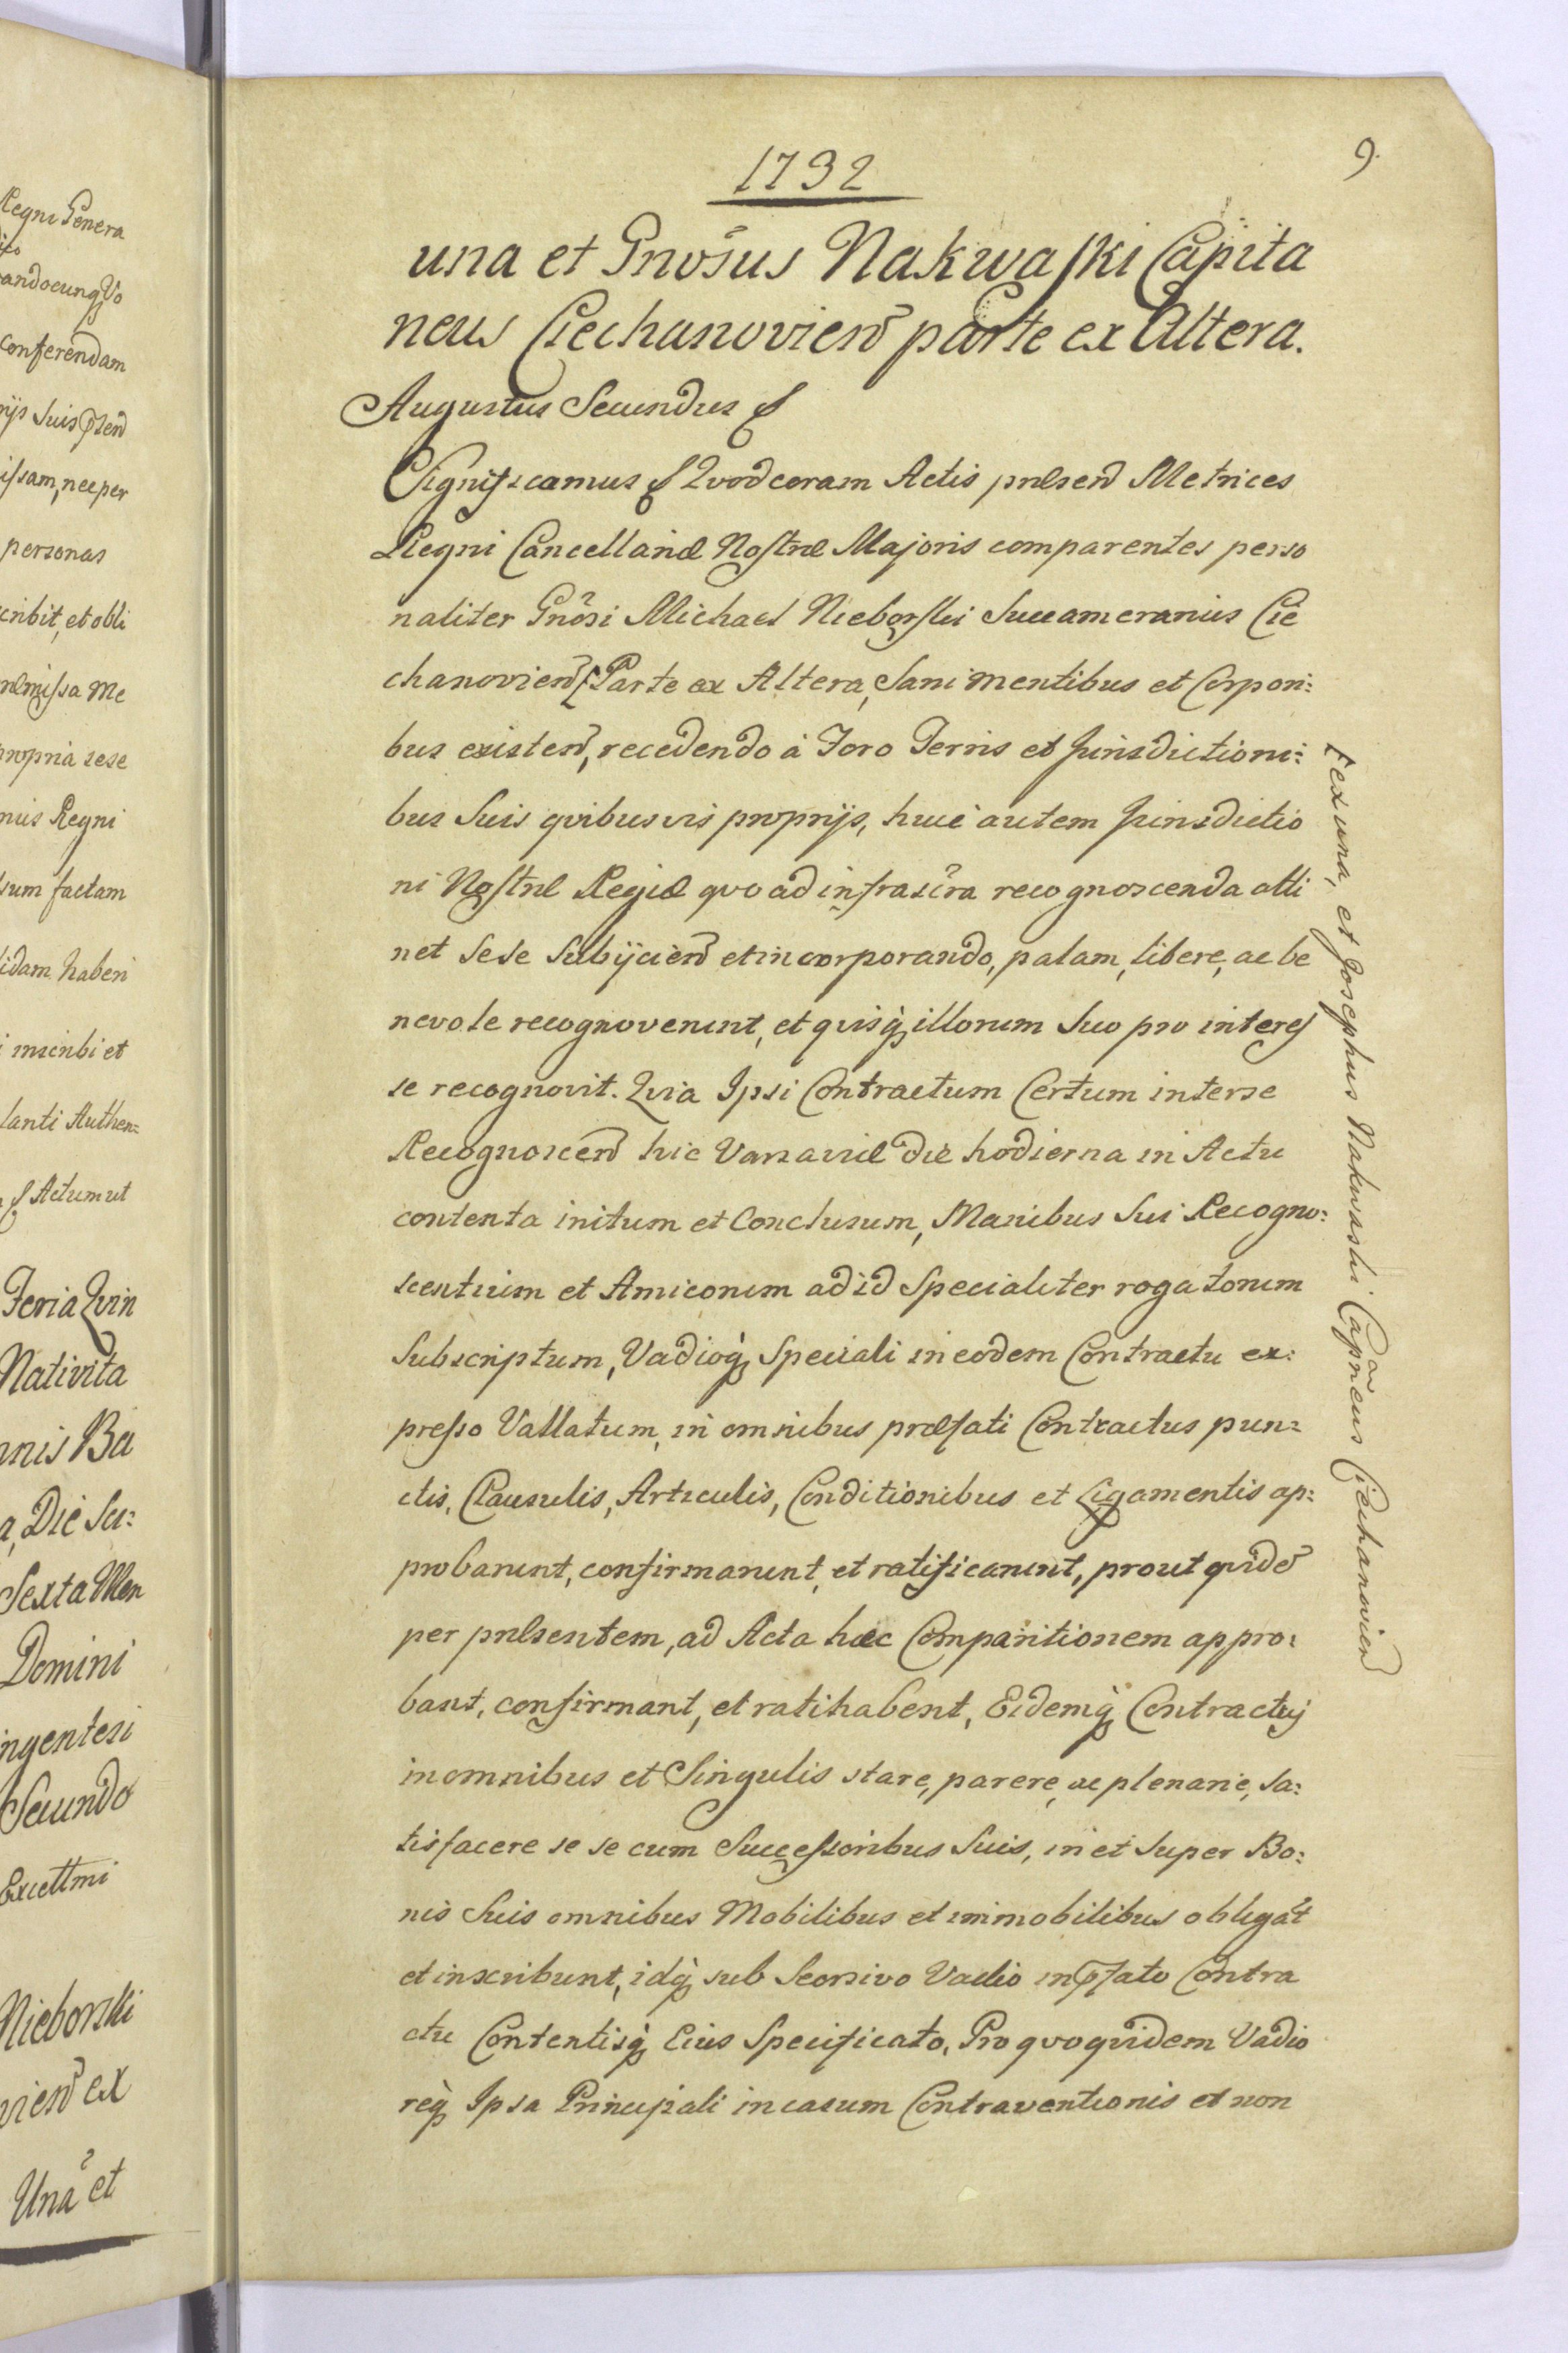 Regni Genera
andocunq₃ Vo
conferendam
rijs Suis
issam, nec per
personas
cribit, et obli
missa Me
propria sese
nius Regni
sum factam
idam haberi
i inscribi et
lanti Authen=
Actum ut
Feria Qvin
Nativita
nnis Ba
a, Die Su:
Sexta Men
Domini
ingentesi
Secundo
Excellmi
Nieborski
vien̄ ex
Una et
1732
9.
una et Gnosus Nakwaski Capita
neus Ciechanovien̄ parte ex Altera.
Augustus Secundus &
Significamus & Qvod coram Actis prŭlsen̄ Metrices
Regni Cancellariæ Nostræ Majoris comparentes perso
naliter Gnosi Michael Nieborski Succamerarius Cie
chanovien̄ Parte ex Altera, Sani mentibus et Corpori=
bus existen̄, recedendo à Foro Terris et Jurisdictioni=
bus Suis qvibusvis proprijs, huic autem Jurisdictio
ni Nostræ Regiæ qvo ad infrascra recognoscenda atti
net sese Subijcien̄ et incorporando, palam, libere, ac be
nevole recognoverunt, et qvisq₃ illorum Suo pro interes
se recognovit. Qvia Ipsi Contractum Certum inter se
Recognoscen̄ hic Varsaviæ die hodierna in Actu
contenta initum et Conclusum, Manibus Sui Recogno=
scentium et Amicorum ad id Specialiter rogatorum
Subscriptum, Vadioq₃ Speciali in eodem Contractu ex=
presso Vallatum, in omnibus præfati Contractus pun=
ctis, Clausulis, Articulis, Conditionibus et Ligamentis ap=
probarunt, confirmarunt, et ratificarunt, prout qvidē
per prælsentem, ad Acta hæc Comparitionem appro=
bant, confirmant, et ratihabent, Eidemq₃ Contractuj
in omnibus et Singulis stare, parere, ac plenarie, sa=
tisfacere se se cum Successoribus Suis, in et Super Bo=
nis Suis omnibus Mobilibus et immobilibus obligat
et inscribunt, idq₃ sub Seorsivo Vadio in pfato Contra
ctu Contentisq₃ Eius Specificato, Pro qvo qvidem Vadio
req₃ Ipsa Principali in casum Contraventionis et non
ex una, et Josephus Nakwaski Capneus Ciechanovien̄